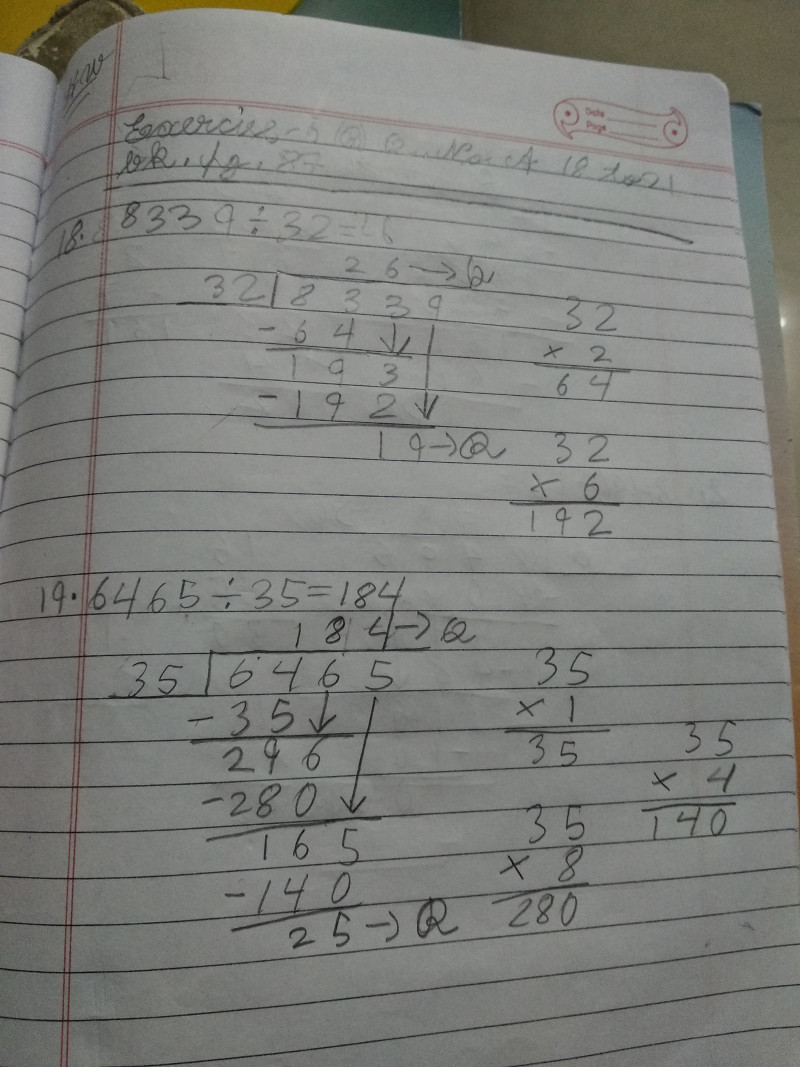 H.W
Date
Page
Exercise
bk. pg. 87
18. 8339 ÷ 32 = 26
26 → Q
32 8339
- 64
193
- 192
19 → Q
32
x 2
64
32
x 6
192
19. 6465 ÷ 35 = 184
184 → Q
35 6465
- 35
296
- 280
165
- 140
25 → Q
35
x 1
35
35
x 4
140
35
x 8
280